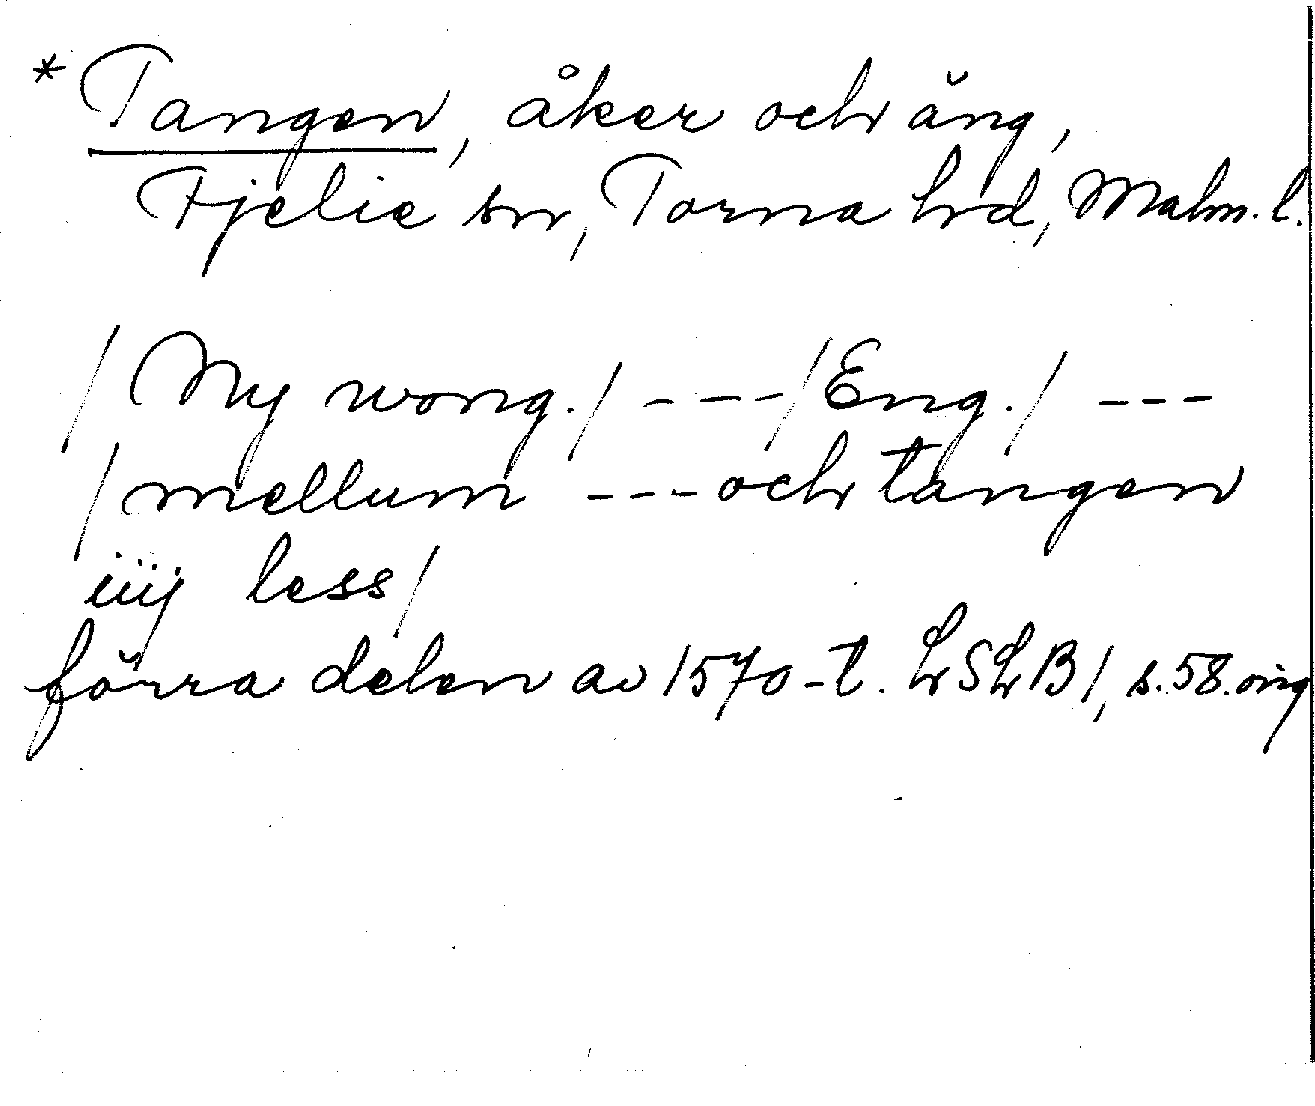 * Tangen, åker och äng,
Fjelie sn, Torna hd, Malm. l.
/Ny wong./ --- /Eng./ ---
/mellum --- och tangen
iiij less/
förra delen av 1570-t. LSLB 1, s. 58. orig